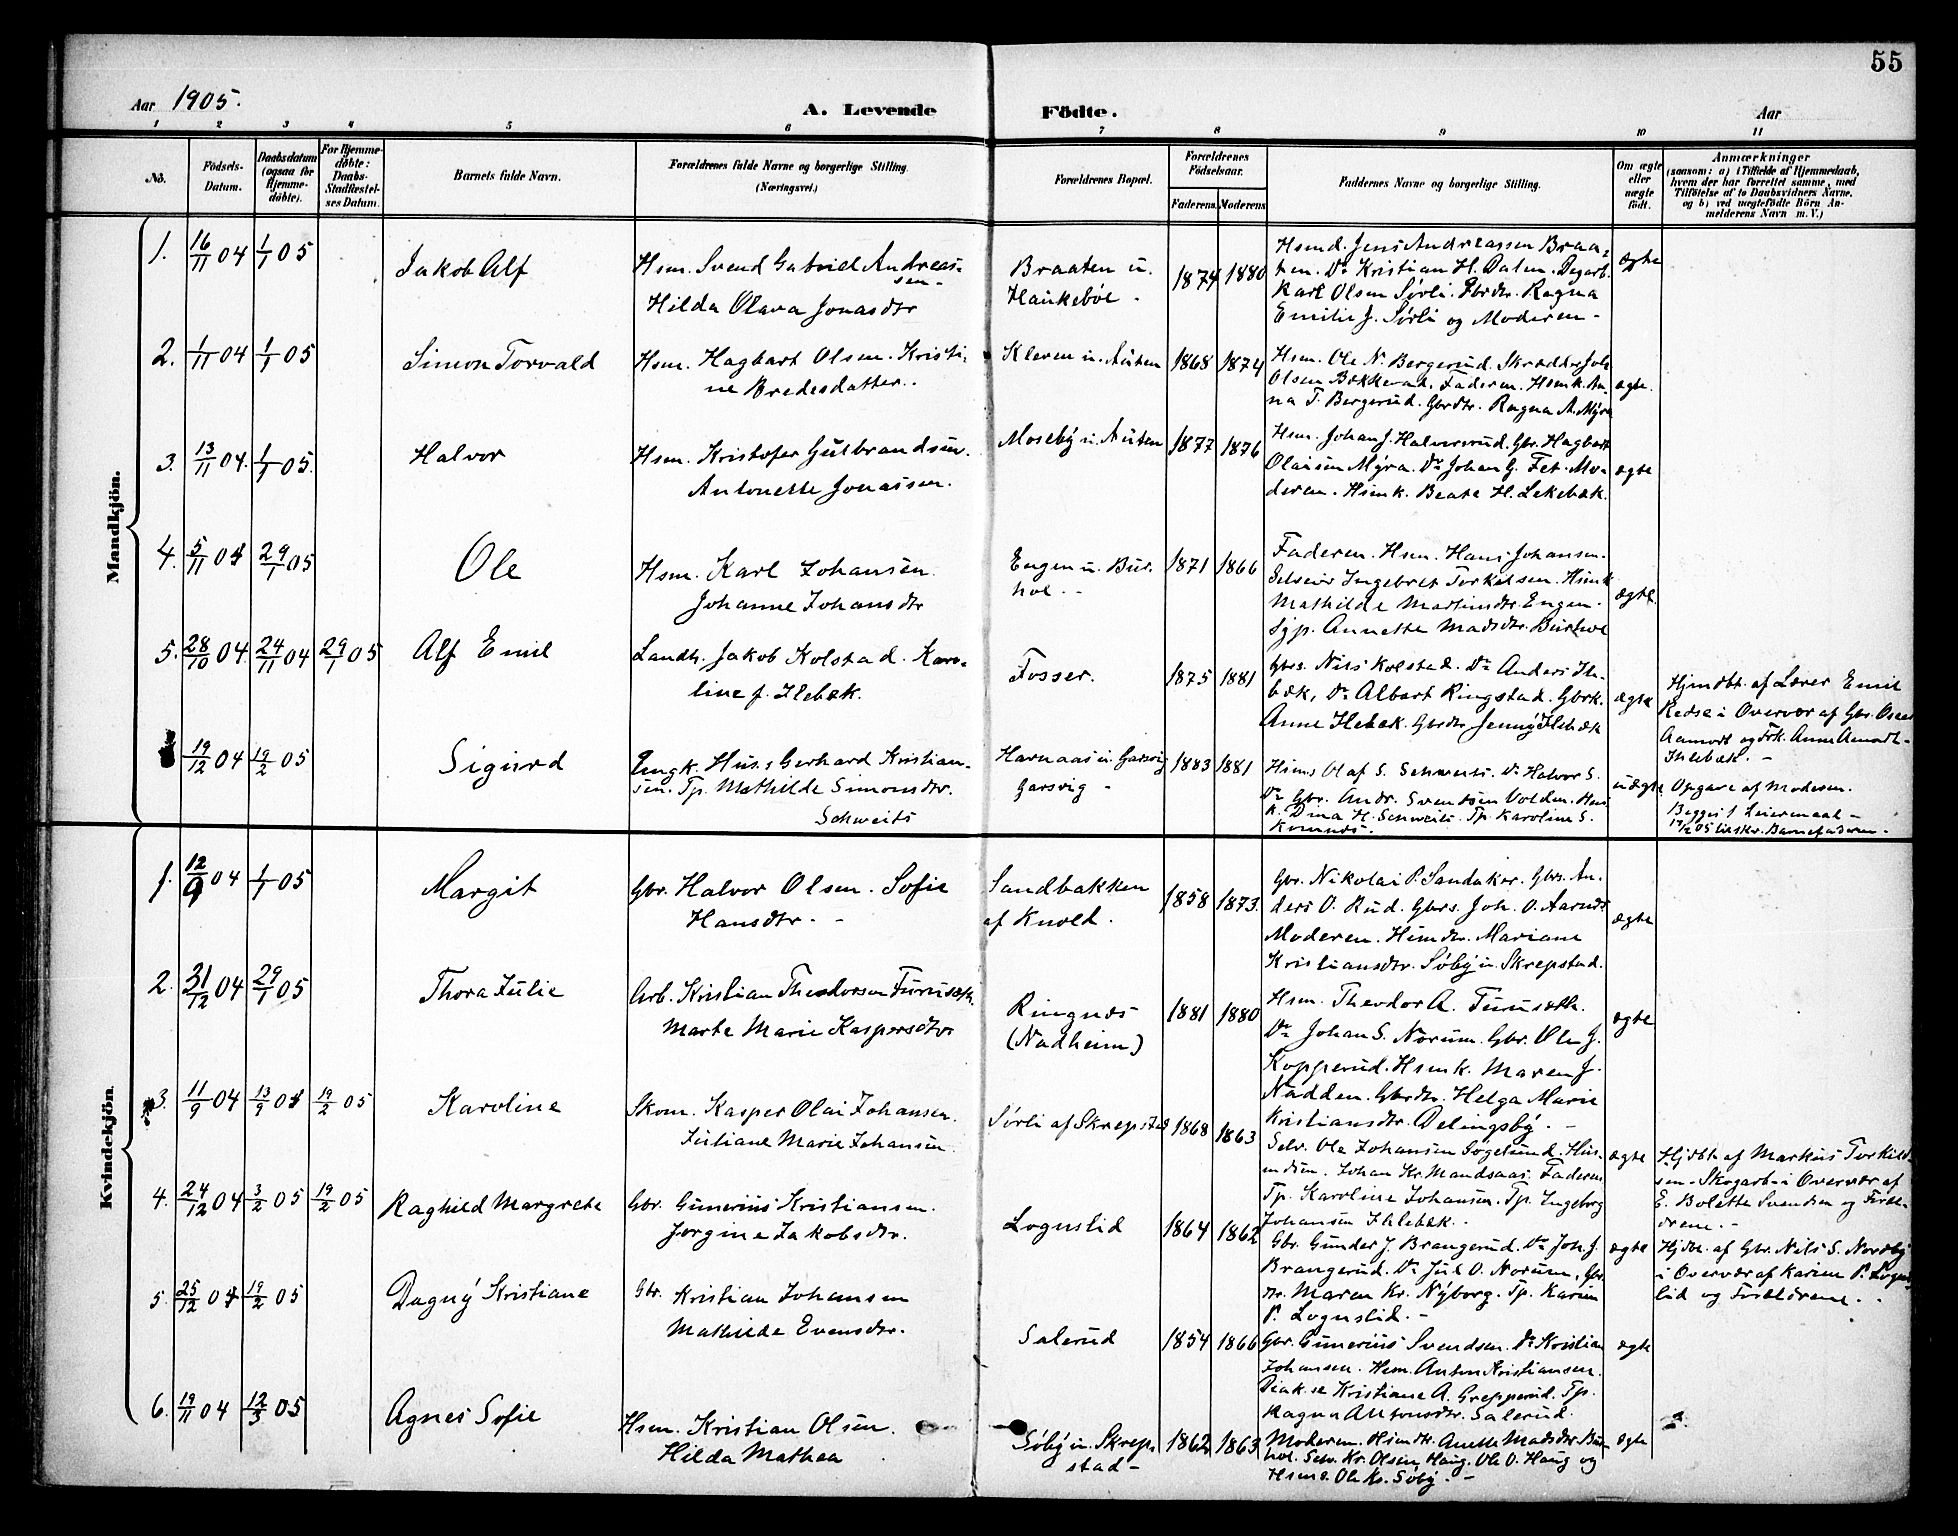 55
Aar 1905.
A. Levende Födte.
Aar
1 2 3 4 5 6 7 8 9 10 11
No.
Födsels-
Datum.
Daabsdatum
(ogsaa for
Hjemme-
döbte).
For Hjemme-
döbte:
Daabs-
Stadfæstel-
ses Datum.
Barnets fulde Navn.
Forældrenes fulde Navne og borgerlige Stilling.
(Næringsvei.)
Forældrenes Bopæl.
Forældrenes
Födselsaar.
Faderens. Moderens
Faddernes Navne og borgerlige Stilling.
Om ægte
eller
uægte
födt.
Anmærkninger
(saasom: a) i Tilfælde af Hjemmedaab,
hvem der har forrettet samme, med
Tilföielse af to Daabsvidners Navne,
og b) ved uægtefödte Börn An-
melderens Navn m. V.)
Mandkjön.
1. 16/11 04 1/1 05
Jakob Alf
Hsm. Svend Gabriel Andreas-
sen-
Hilda Olava Jonasdtr
Braaten u.
Haukebøl -
1874 1880
Hsmd. Jens Andreassen Braa-
ten. Do Kristian H. Dalen. Dagarb.
Karl Olsen Sørli. Gbrdtr. Ragna
Emilie J. Sørli og Moderen -
ægte
2. 1/11 04 1/1 05
Simon Torvald
Hsm. Hagbart Olsen. Kristi-
ne Bredesdatter.
Kleven u. Auten
1868 1874
Hsm. Ole N. Bergerud. Skrædder Joh.
Olsen Bækkevad. Faderen. Hsmk. An-
na T. Bergerud. Gbrdtr. Ragna A. Myra
ægte.
3. 13/11 04. 1/1 05.
Halvor
Hsm. Kristofer Gulbrandsen.
Antonette Jonassen.
Moseby u. Auten
1877 1876
Hsm. Johan J. Halvorsrud. Gbr. Hagbart
Olaisen Myra. Do Johan G. Fet. Mo-
deren. Hsmk. Beate H. Lekebæk.
ægte
4. 5/11 04 29/1 05
Ole
Hsm. Karl Johansen.
Johanne Johansdtr
Engen u. Bur-
hol. -
1871 1866
Faderen. Hsm. Hans Johansen.
Ingebret Torkelsen. Hsmk
Mathilde Martinsdtr. Engen.
Annette Madsdtr. Burhol
ægte.
5. 28/10 04. 24/11 04 29/1 05
Alf Emil
Landh. Jakob Kolstad. Karo-
line f. Ilebæk.
Fosser.
1875 1881
Gbrs. Nils Kolstad. Do Anders Ile-
bæk, Do Albert Ringstad. Gbrk.
Anne Ilebæk. Gbrdtr Jenny Ilebæk
ægte
Hjmdbt. af Lærer Emil
i Overvær af Gbr.
Aamodt og Frk. Anne Aamodt-
Ilebæk. -
19/12 04 19/2 05
Sigurd
Ungk. Hus. s Gerhard Kristian-
sen. Tp. Mathilde Simonsdtr.
Schweits
Harnaas u. Garsvig
Garsvig -
1883 1881
Hsms Olaf S. Schweits. Do Halvor S.
Do Gbr. Andr. Svendsen Volden. Hus-
k. Dina H. Schweits. Tp. Karoline S.
uægte.
Opgave af Moderen.
Begges 1 Leiermaal -
Barnefaderen -
Kvindekjön.
1. 12/9 04 1/1 05
Margit
Gbr. Halvor Olsen. Sofie
Hansdtr. -
Sandbakken
af Knold.
1858 1873.
Gbr. Nikolai P. Sandaker. Gbrs. An-
ders O. Rud. Gbrs. Joh. O. Aarnæs
Moderen. Hsmdtr. Mariane
Kristiansdtr. Søby u. Skrepstad.
ægte
2. 31/12 04 29/1 05
Thora Julie
Arb. Kristian Theodorsen Furusæth.
Marte Marie Kaspersdtr
Ringnæs
(Nadheim)
1881 1880
Hsm. Theodor A. Furusæth.
Do Johan S. Norum. Gbr. Ole J.
Kopperud. Hsmk. Maren J.
Nadden. Gbrdtr. Helga Marie
Kristiansdtr. Delingsby. -
ægte
3. 11/9 04 13/9 04 19/2 05
Karoline
Skom. Kasper Olai Johansen.
Juliane Marie Johansen.
Sørli af Skrepstad
1868 1863
Selv. Ole Johansen Hus-
Johan Kr. Faderen
Tp. Karoline Johansen. Tp. Ingeborg
Johansen Ihlebæk. -
ægte
Hjdbt. af Markus Torkild-
sen - Skogarb - i Overvær af
E. Bolette Svendsen og Foræl-
drene. -
4. 24/12 04 3/2 05 19/2 05
Raghild Margrete
Gbr. Gunerius Kristiansen.
Jørgine Jakobsdtr.
Lognslid
1864 1862
Gbr. Gunder J. Brangerud. Do Joh. J.
Brangerud. Do Jul O. Norum, Gbr.
dtr. Maren Kr. Nyborg. Tp. Karen
P. Lognslid. -
ægte
Hjdbt. af Gbr. Nils S. Nordby
i Overvær af Karen P. Logns-
lid og Forældrene. -
5. 25/12 04 19/2 05
Dagny Kristiane
Gbr. Kristian Johansen
Mathilde Evensdtr.
Salerud
1854 1866
Gbr. Gunerius Svendsen. Do Kristian
Johansen. Hsm. Anton Kristiansen.
Kristiane A. Grepperud. Tp.
Ragna Antonsdtr. Salerud.
ægte
6. 19/11 04 12/3 05
Agnes Sofie
Hsm. Kristian Olsen.
Hilda Mathea
Søby u. Skrep-
stad -
1862 1863
Moderen. Hsmdtr. Anette Madsdtr. Bur-
hol. Selv. Kr. Olsen Haug. Ole O. Haug og
Hsms. Ole Kr. Søby. -
ægte